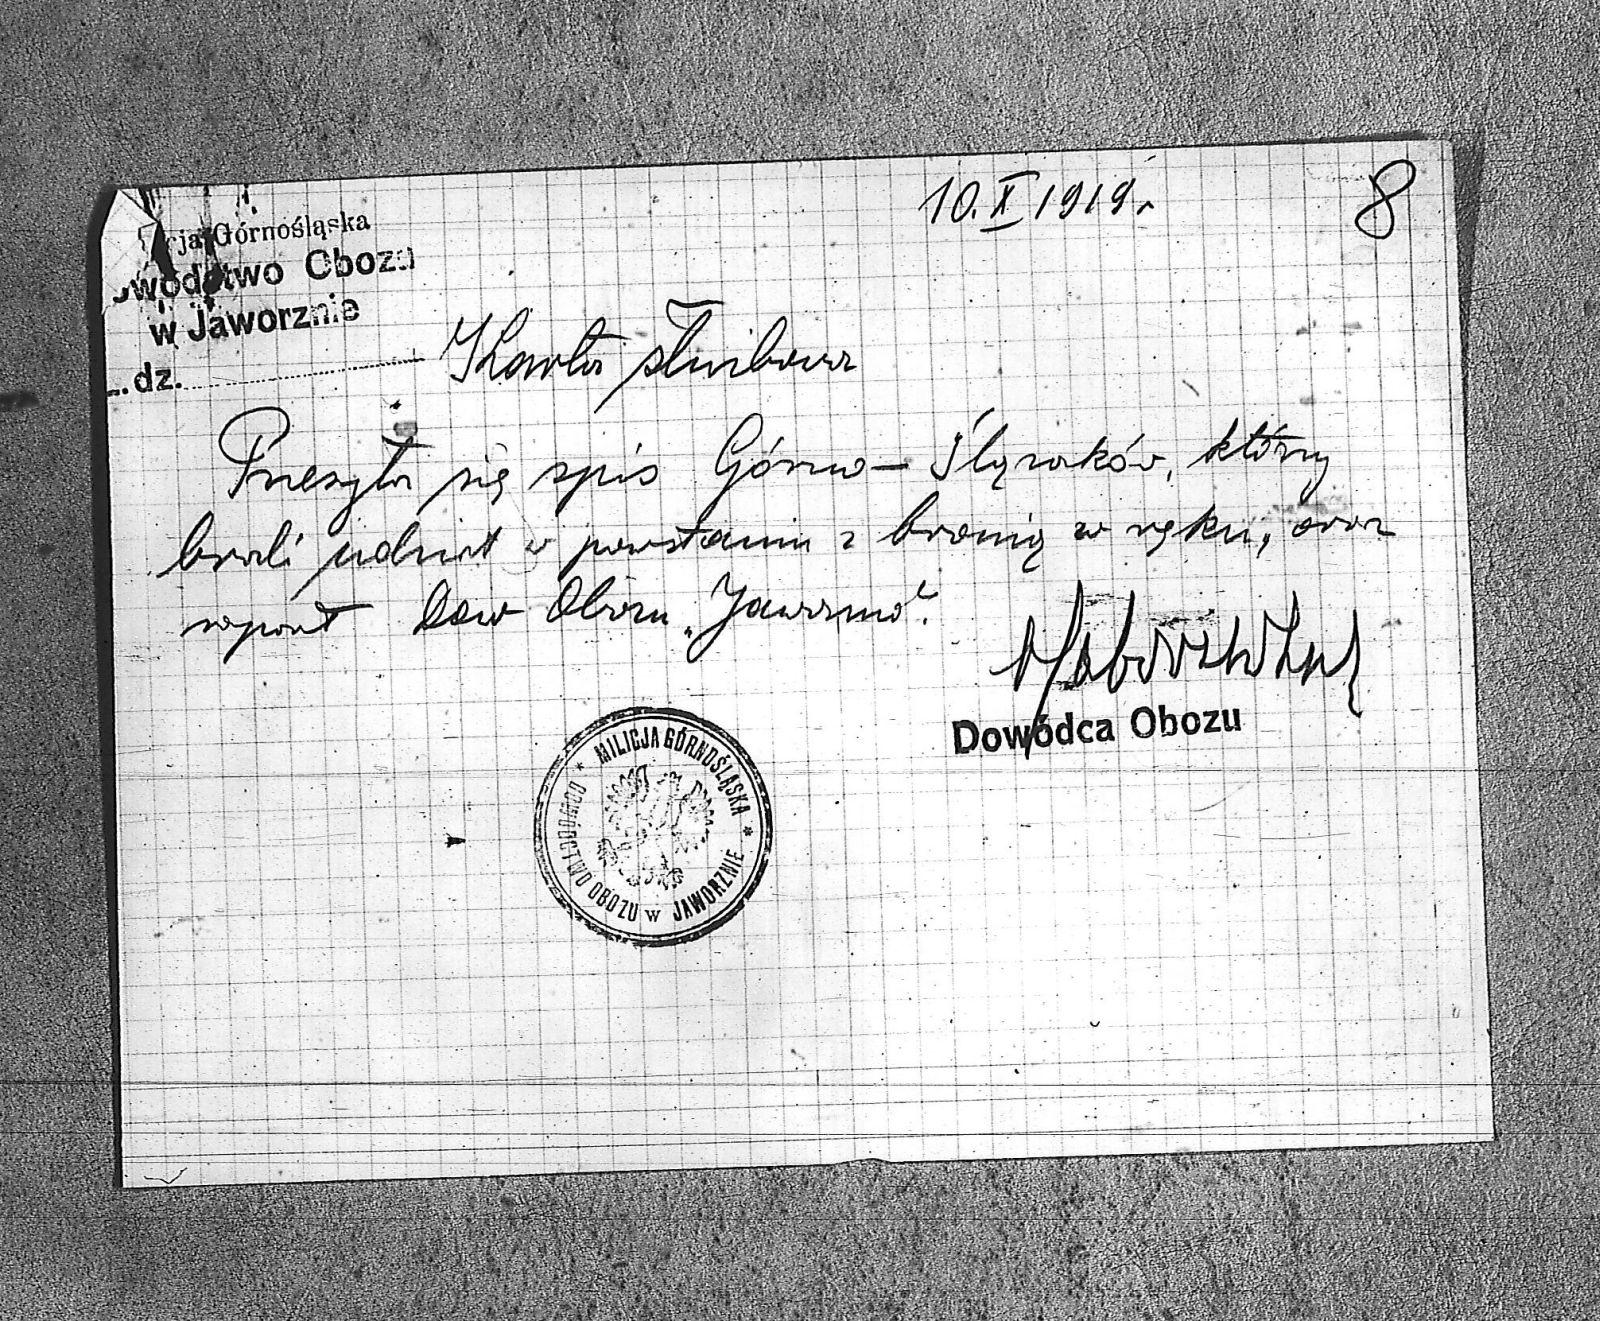 10.X 1919 r.
8
cja Górnośląska
owództwo Obozu
w Jaworznie
L. dz.
Karta służbowa
Przesyła się spis Górno-Ślązaków, którzy
brali udział w powstaniu z bronią w ręku, oraz
raport Dow Obozu „Jaworzno".
Dowódca Obozu
* MILICJA GÓRNOŚLĄSKA *
DOWÓDZTWO OBOZU w JAWORZNIE